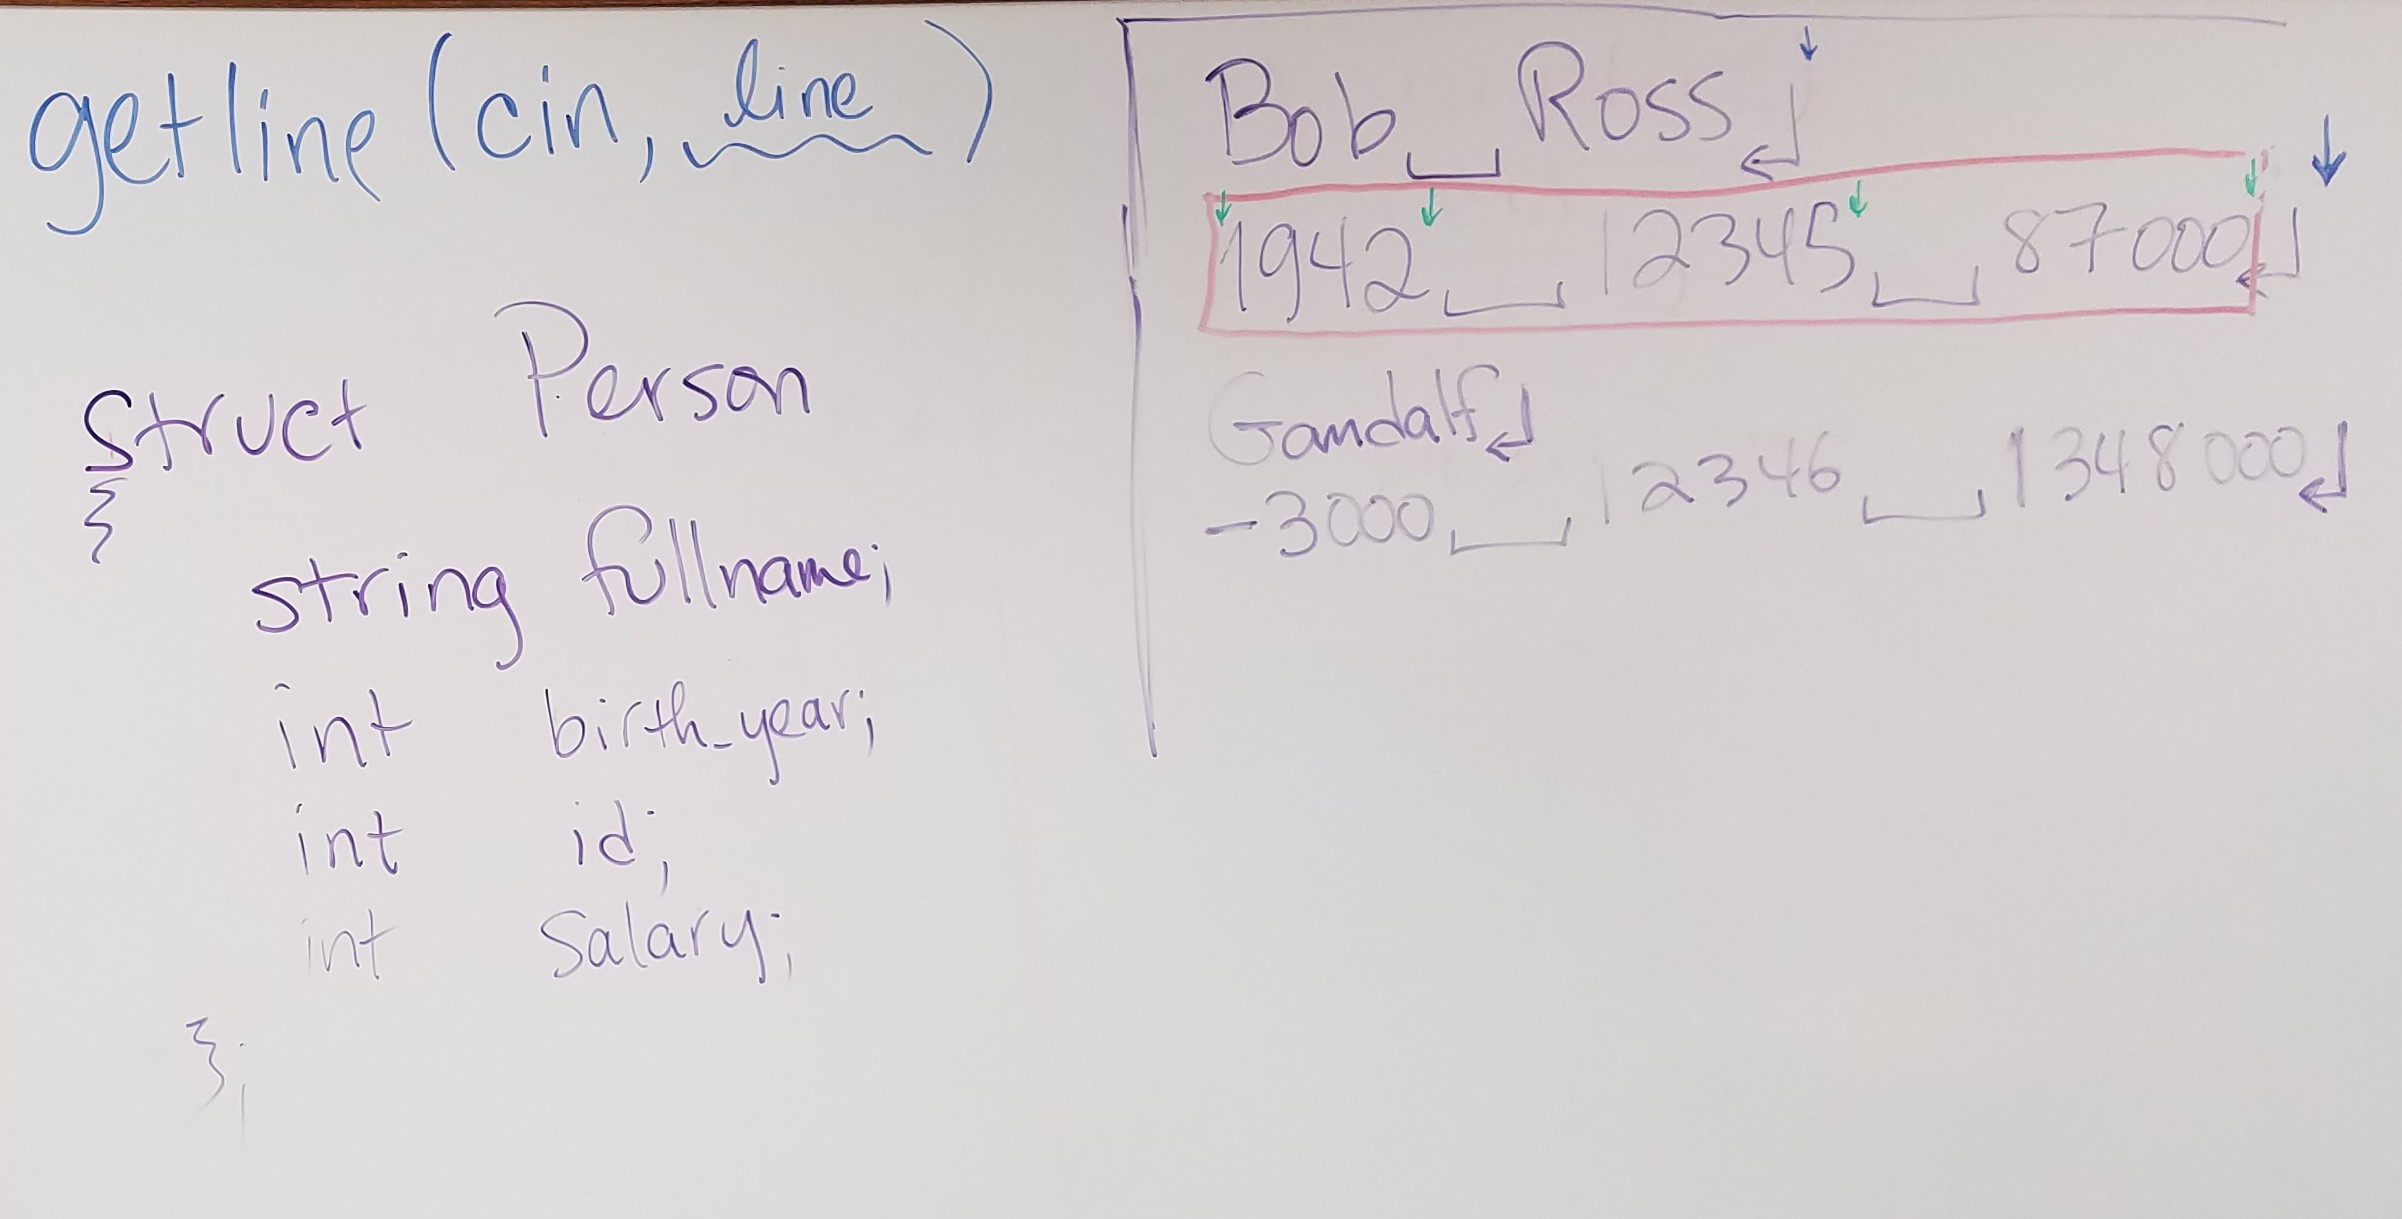 getline (cin, line)
struct Person
{
string fullname;
int birth_year;
int id;
int salary;
};
Bob␣Ross↵
1942␣12345␣87000↵
Gandalf↵
-3000␣12346␣1348000↵